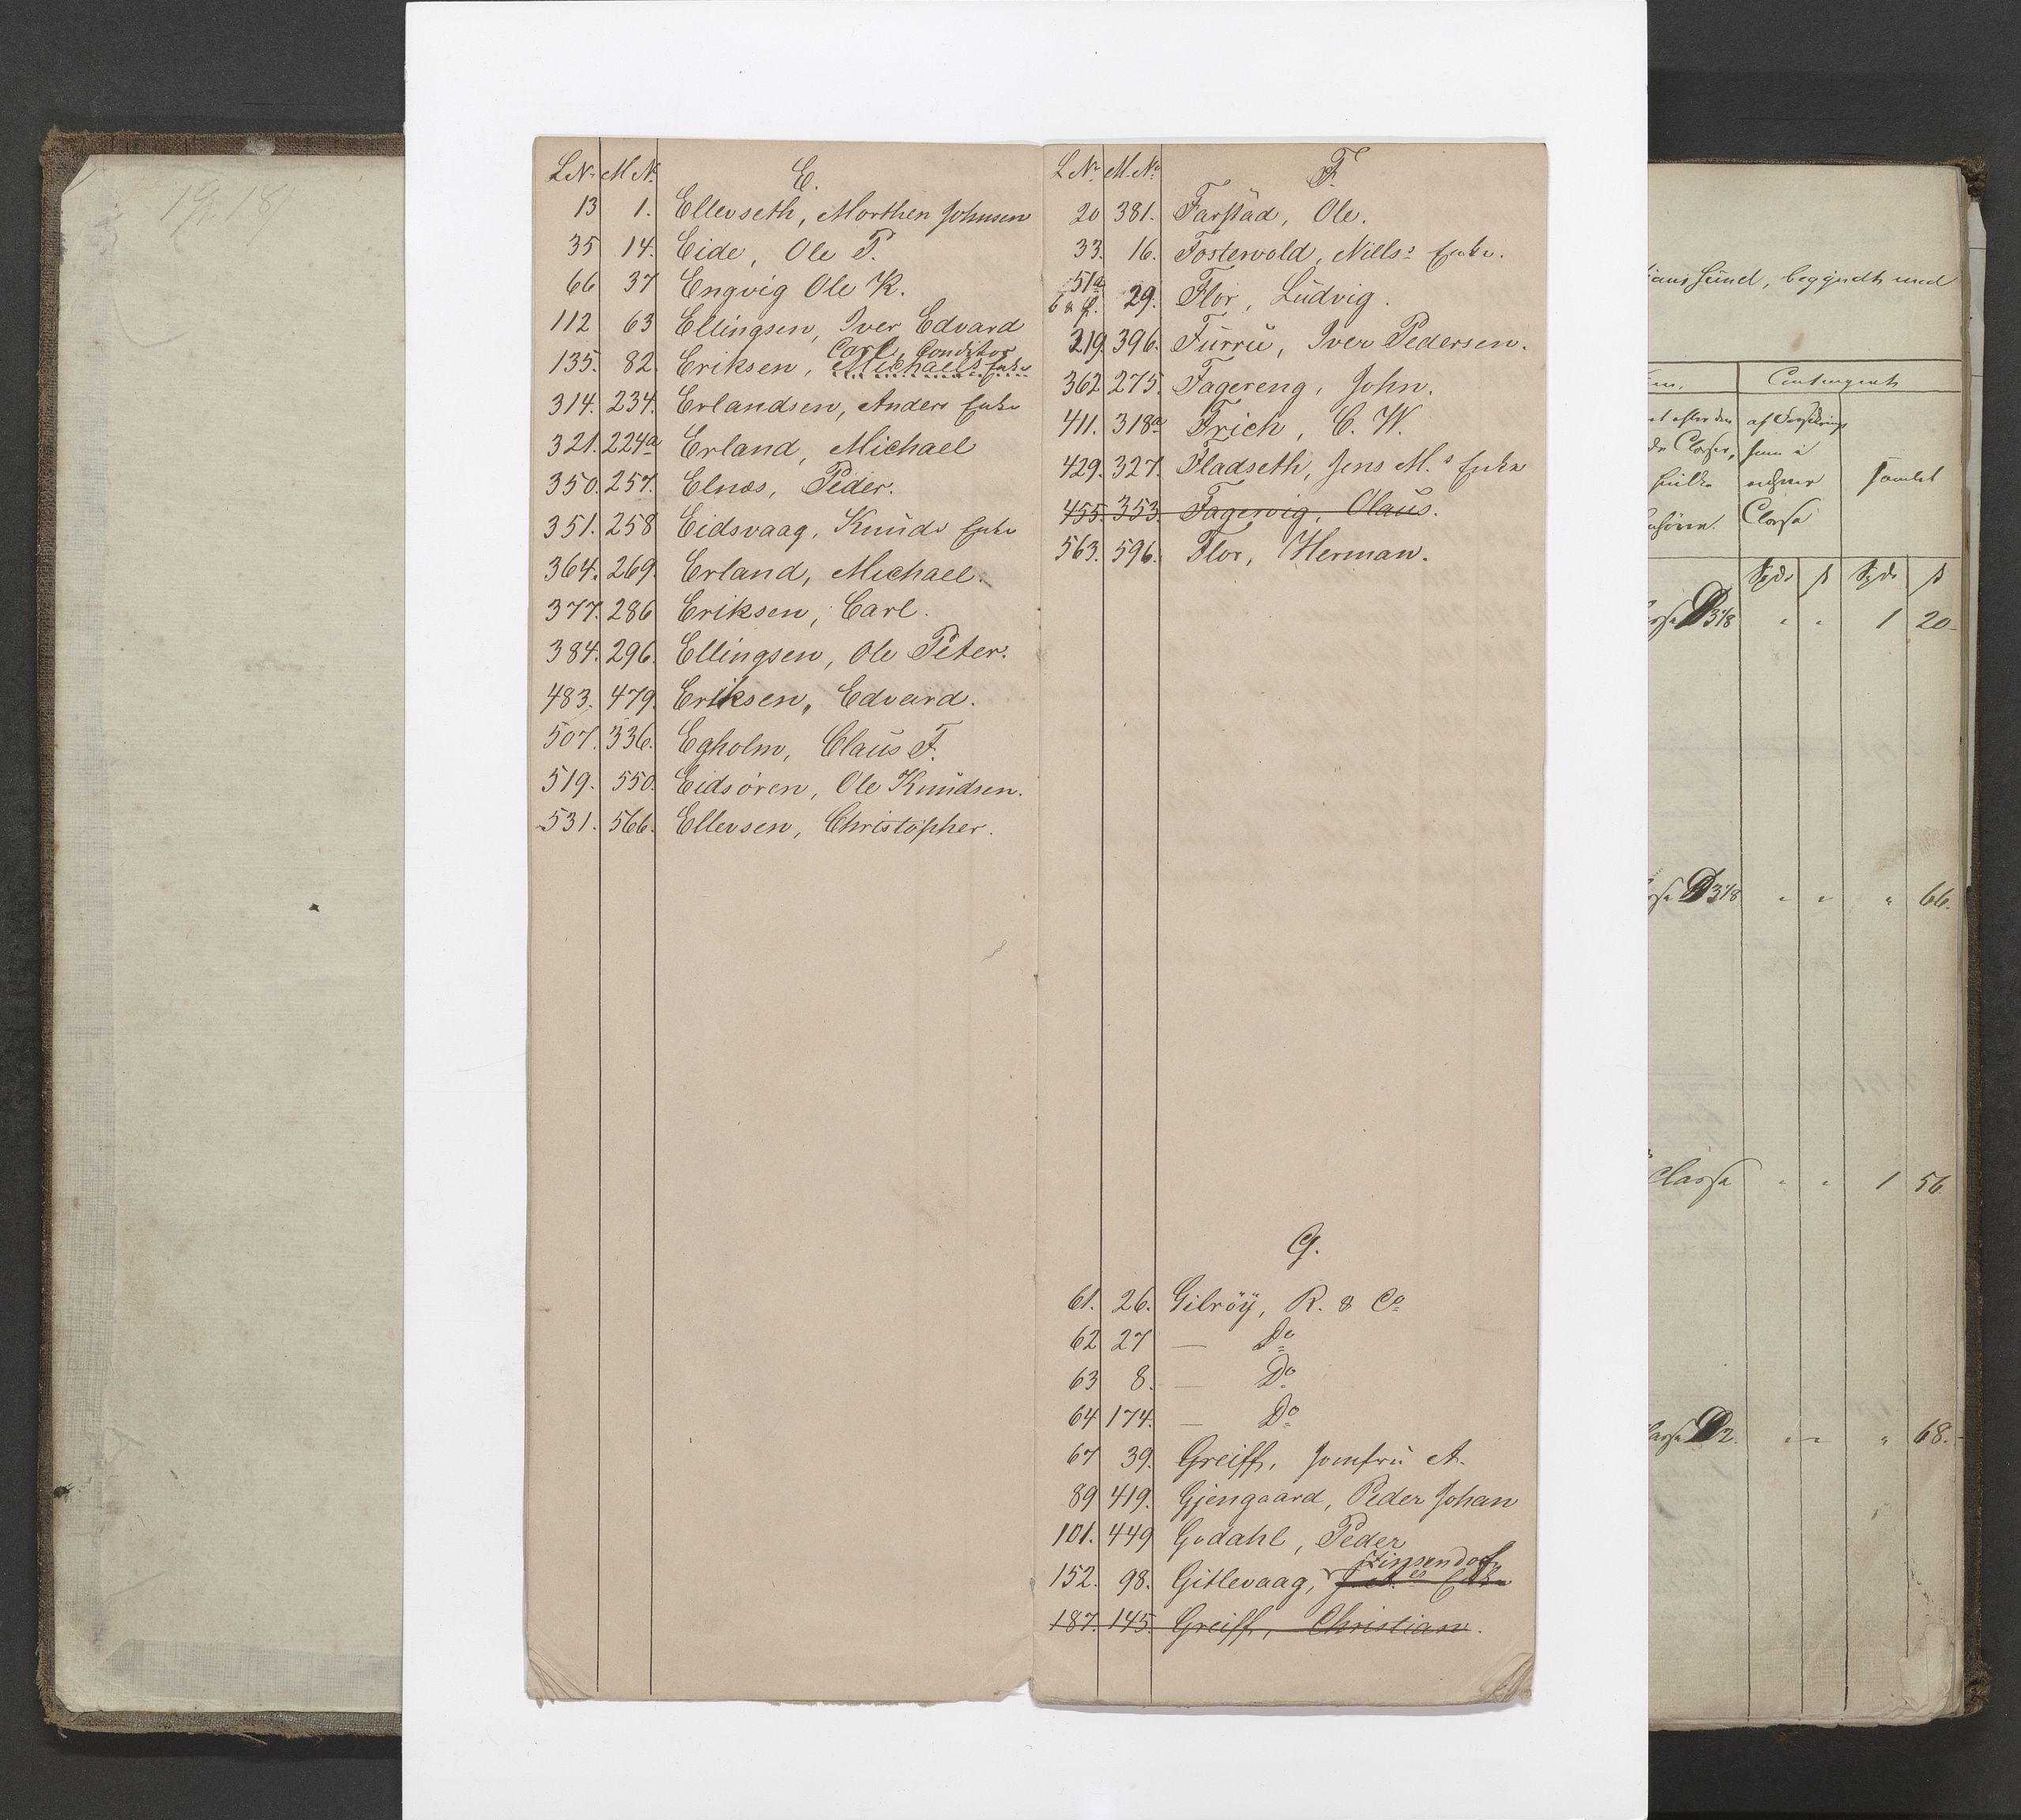 L.N. M.N.
E.
13 1. Ellevseth, Morthen Johnsen
35 14. Eide, Ole P.
66 37 Engvig Ole K.
112 63 Ellingsen, Iver Edvard
Carl, Conditor
135. 82. Eriksen, Michaels Enke
314. 234. Erlandsen, Anders Enke
321. 224a Erland, Michael
350. 257. Elnæs, Peder.
351. 258 Eidsvaag, Knuds Enke
364. 269. Erland, Michael.
377. 286 Eriksen, Carl.
384. 296. Ellingsen, Ole Peter.
483. 479. Eriksen, Edvard.
507. 336. Egholm, Claus F.
519. 550. Eidsören, Ole Knudsen.
531. 566. Ellevsen, Christopher.
L.No M.No
F.
20 381. Farstad, Ole.
33. 16. Fostervold, Nills: Enke.
51a
6 a f. 29. Flor, Ludvig.
219. 396. Furru, Iver Pedersen.
362. 275. Fagereng, John.
411. 318a Frich, C. W.
429. 327. Fladseth, Jens M.s Enke
455. 353. Fagervig, Olaus.
563. 596. Flor, Herman.
G.
61. 26. Gilröy, R. & Co
62 27 — Do
63 8. — Do
64 174. — Do
67 39. Greiff, Jomfru A.
89 419. Gjengaard, Peder Johan
101. 449 Godahl, Peder
Zinsendorf
152. 98. Gitlevaag, Enke
187. 145. Greiff, Christian.
begyndt med
Contingent
af
Classer, som i
samlet
Classe
Spd. ß Spd. ß
D 3/8 " " 1 20
D 3/8 " " " 66.
Classe " " 1 56
D 2. " " " 68.